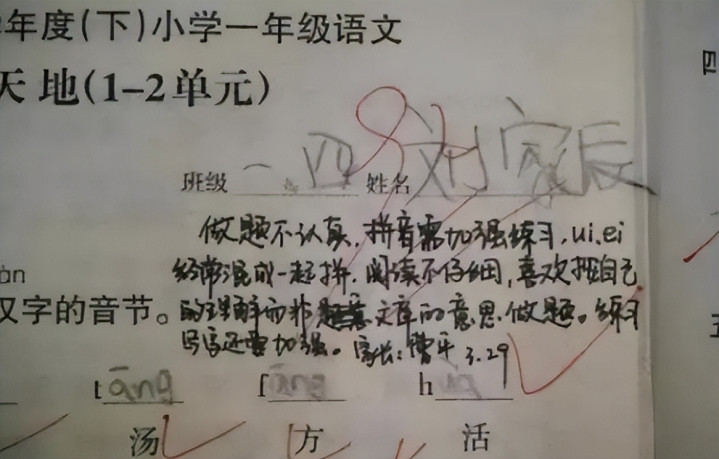 年度(下)小学一年级语文
天地(1-2单元)
班级 一四 姓名 刘家辰
做题不认真,拼音需加强练习,ui、ei
经常混成一起拼,阅读不仔细,喜欢把自己
的理解而非题意文章的意思做题。练习
书写还要加强。家长:曹平 3.29
汉字的音节。
tāng fāng huó
汤 方 活
四
五